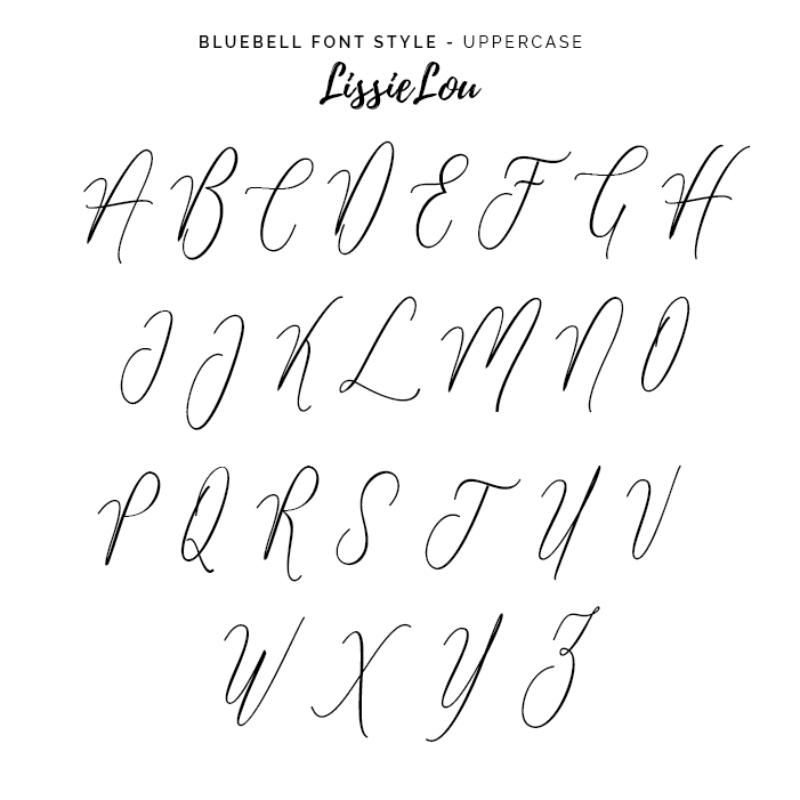 BLUEBELL FONT STYLE - UPPERCASE
LissieLou
A B C D E F G H
I J K L M N O
P Q R S T U V
W X Y Z